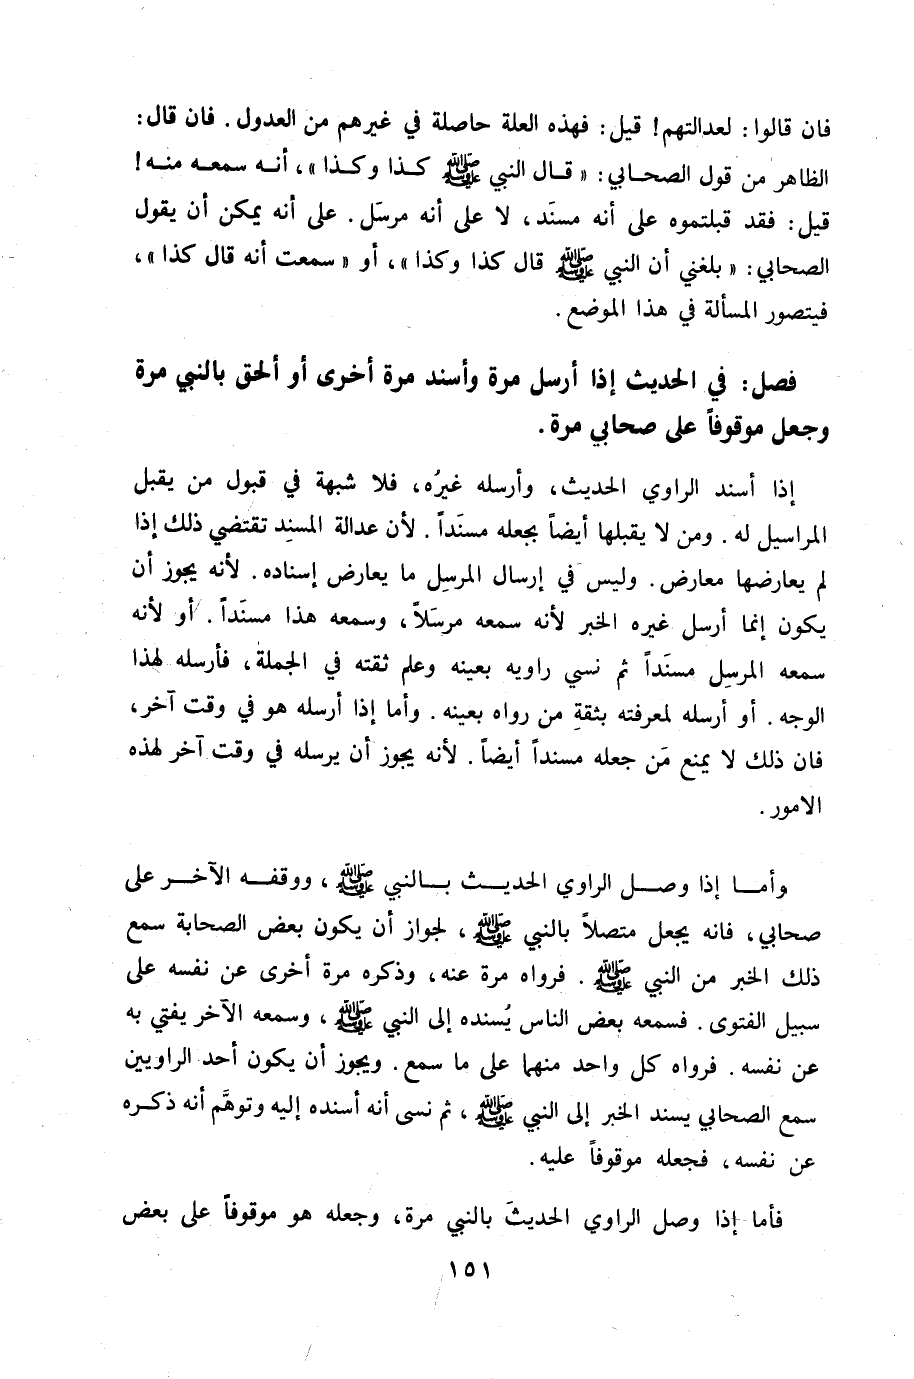 فان قالوا: لعدالتهم! قيل: فهذه العلة حاصلة في غيرهم من العدول. فان قال:
الظاهر من قول الصحابي: « قال النبي ﷺ كذا وكذا »، أنه سمعه منه!
قيل: فقد قبلتموه على أنه مسنَد، لا على أنه مرسَل. على أنه يمكن أن يقول
الصحابي: « بلغني أن النبي ﷺ قال كذا وكذا »، أو « سمعت أنه قال كذا »،
فيتصور المسألة في هذا الموضع.
فصل: في الحديث إذا أرسل مرة وأسند مرة أخرى أو ألحق بالنبي مرة
وجعل موقوفاً على صحابي مرة.
إذا أسند الراوي الحديث، وأرسله غيرُه، فلا شبهة في قبول من يقبل
المراسيل له. ومن لا يقبلها أيضاً يجعله مسنَداً. لأن عدالة المسنِد تقتضي ذلك إذا
لم يعارضها معارض. وليس في إرسال المرسِل ما يعارض إسناده. لأنه يجوز أن
يكون إنما أرسل غيره الخبر لأنه سمعه مرسَلاً، وسمعه هذا مسنَداً. أو لأنه
سمعه المرسِل مسنَداً ثم نسي راويه بعينه وعلم ثقته في الجملة، فأرسله لهذا
الوجه. أو أرسله لمعرفته بثقةِ من رواه بعينه. وأما إذا أرسله هو في وقت آخر،
فان ذلك لا يمنع مَن جعله مسنداً أيضاً. لأنه يجوز أن يرسله في وقت آخر لهذه
الامور.
وأما إذا وصل الراوي الحديث بالنبي ﷺ، ووقفه الآخر على
صحابي، فانه يجعل متصلاً بالنبي ﷺ، لجواز أن يكون بعض الصحابة سمع
ذلك الخبر من النبي ﷺ. فرواه مرة عنه، وذكره مرة أخرى عن نفسه على
سبيل الفتوى. فسمعه بعض الناس يُسنده إلى النبي ﷺ، وسمعه الآخر يفتي به
عن نفسه. فرواه كل واحد منهما على ما سمع. ويجوز أن يكون أحد الراويين
سمع الصحابي يسند الخبر إلى النبي ﷺ، ثم نسى أنه أسنده إليه وتوهَّم أنه ذكره
عن نفسه، فجعله موقوفاً عليه.
فأما إذا وصل الراوي الحديثَ بالنبي مرة، وجعله هو موقوفاً على بعض
١٥١